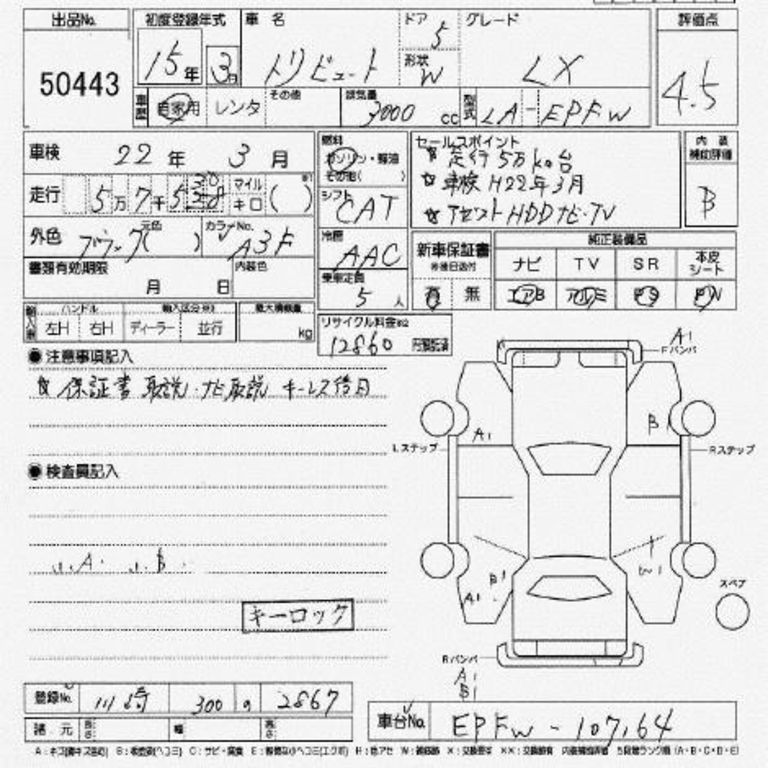 出品No. 初度登録年式 車名 ドア グレード 評価点
50443 15年 3月 トリビュート 5 LX 4.5
形状 W
車歴 自家用 レンタ その他 排気量 3000 cc 型式 LA-EPFW
車検 22年 3月 燃料 ガソリン・軽油 その他( ) セールスポイント 内装補助評価
走行 5万7千 マイル キロ ( ) シフト CAT 走行5万km台 B
車検H22年3月
HDDナビ・TV
外色 ブラック 元色( ) カラーNo. A3F 冷房 AAC 新車保証書 ※後日送付 純正装備品
ナビ TV SR 本皮シート
書類有効期限 月 日 内装色 乗車定員 5人 有 無
輸入車 ハンドル 輸入区分 最大積載量
左H 右H ディーラー 並行 kg リサイクル料金 12860
●注意事項記入
保証書 取説 ナビ取説 キーレス後日
●検査員記入
小A 小B
キーロック
A1 Fバンパ
A1 B1
Lステップ Rステップ
B1 A1 W1
スペア
Rバンパ
A1
B1
登録No. 川崎 300 2867
諸元 長さ 幅 高さ 車台No. EPFW-107164